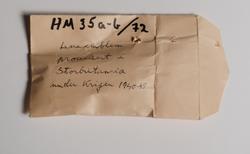 HM 35a-b/72
Luaemblem
produsert i
Storbritannia
under krigen 1940-45